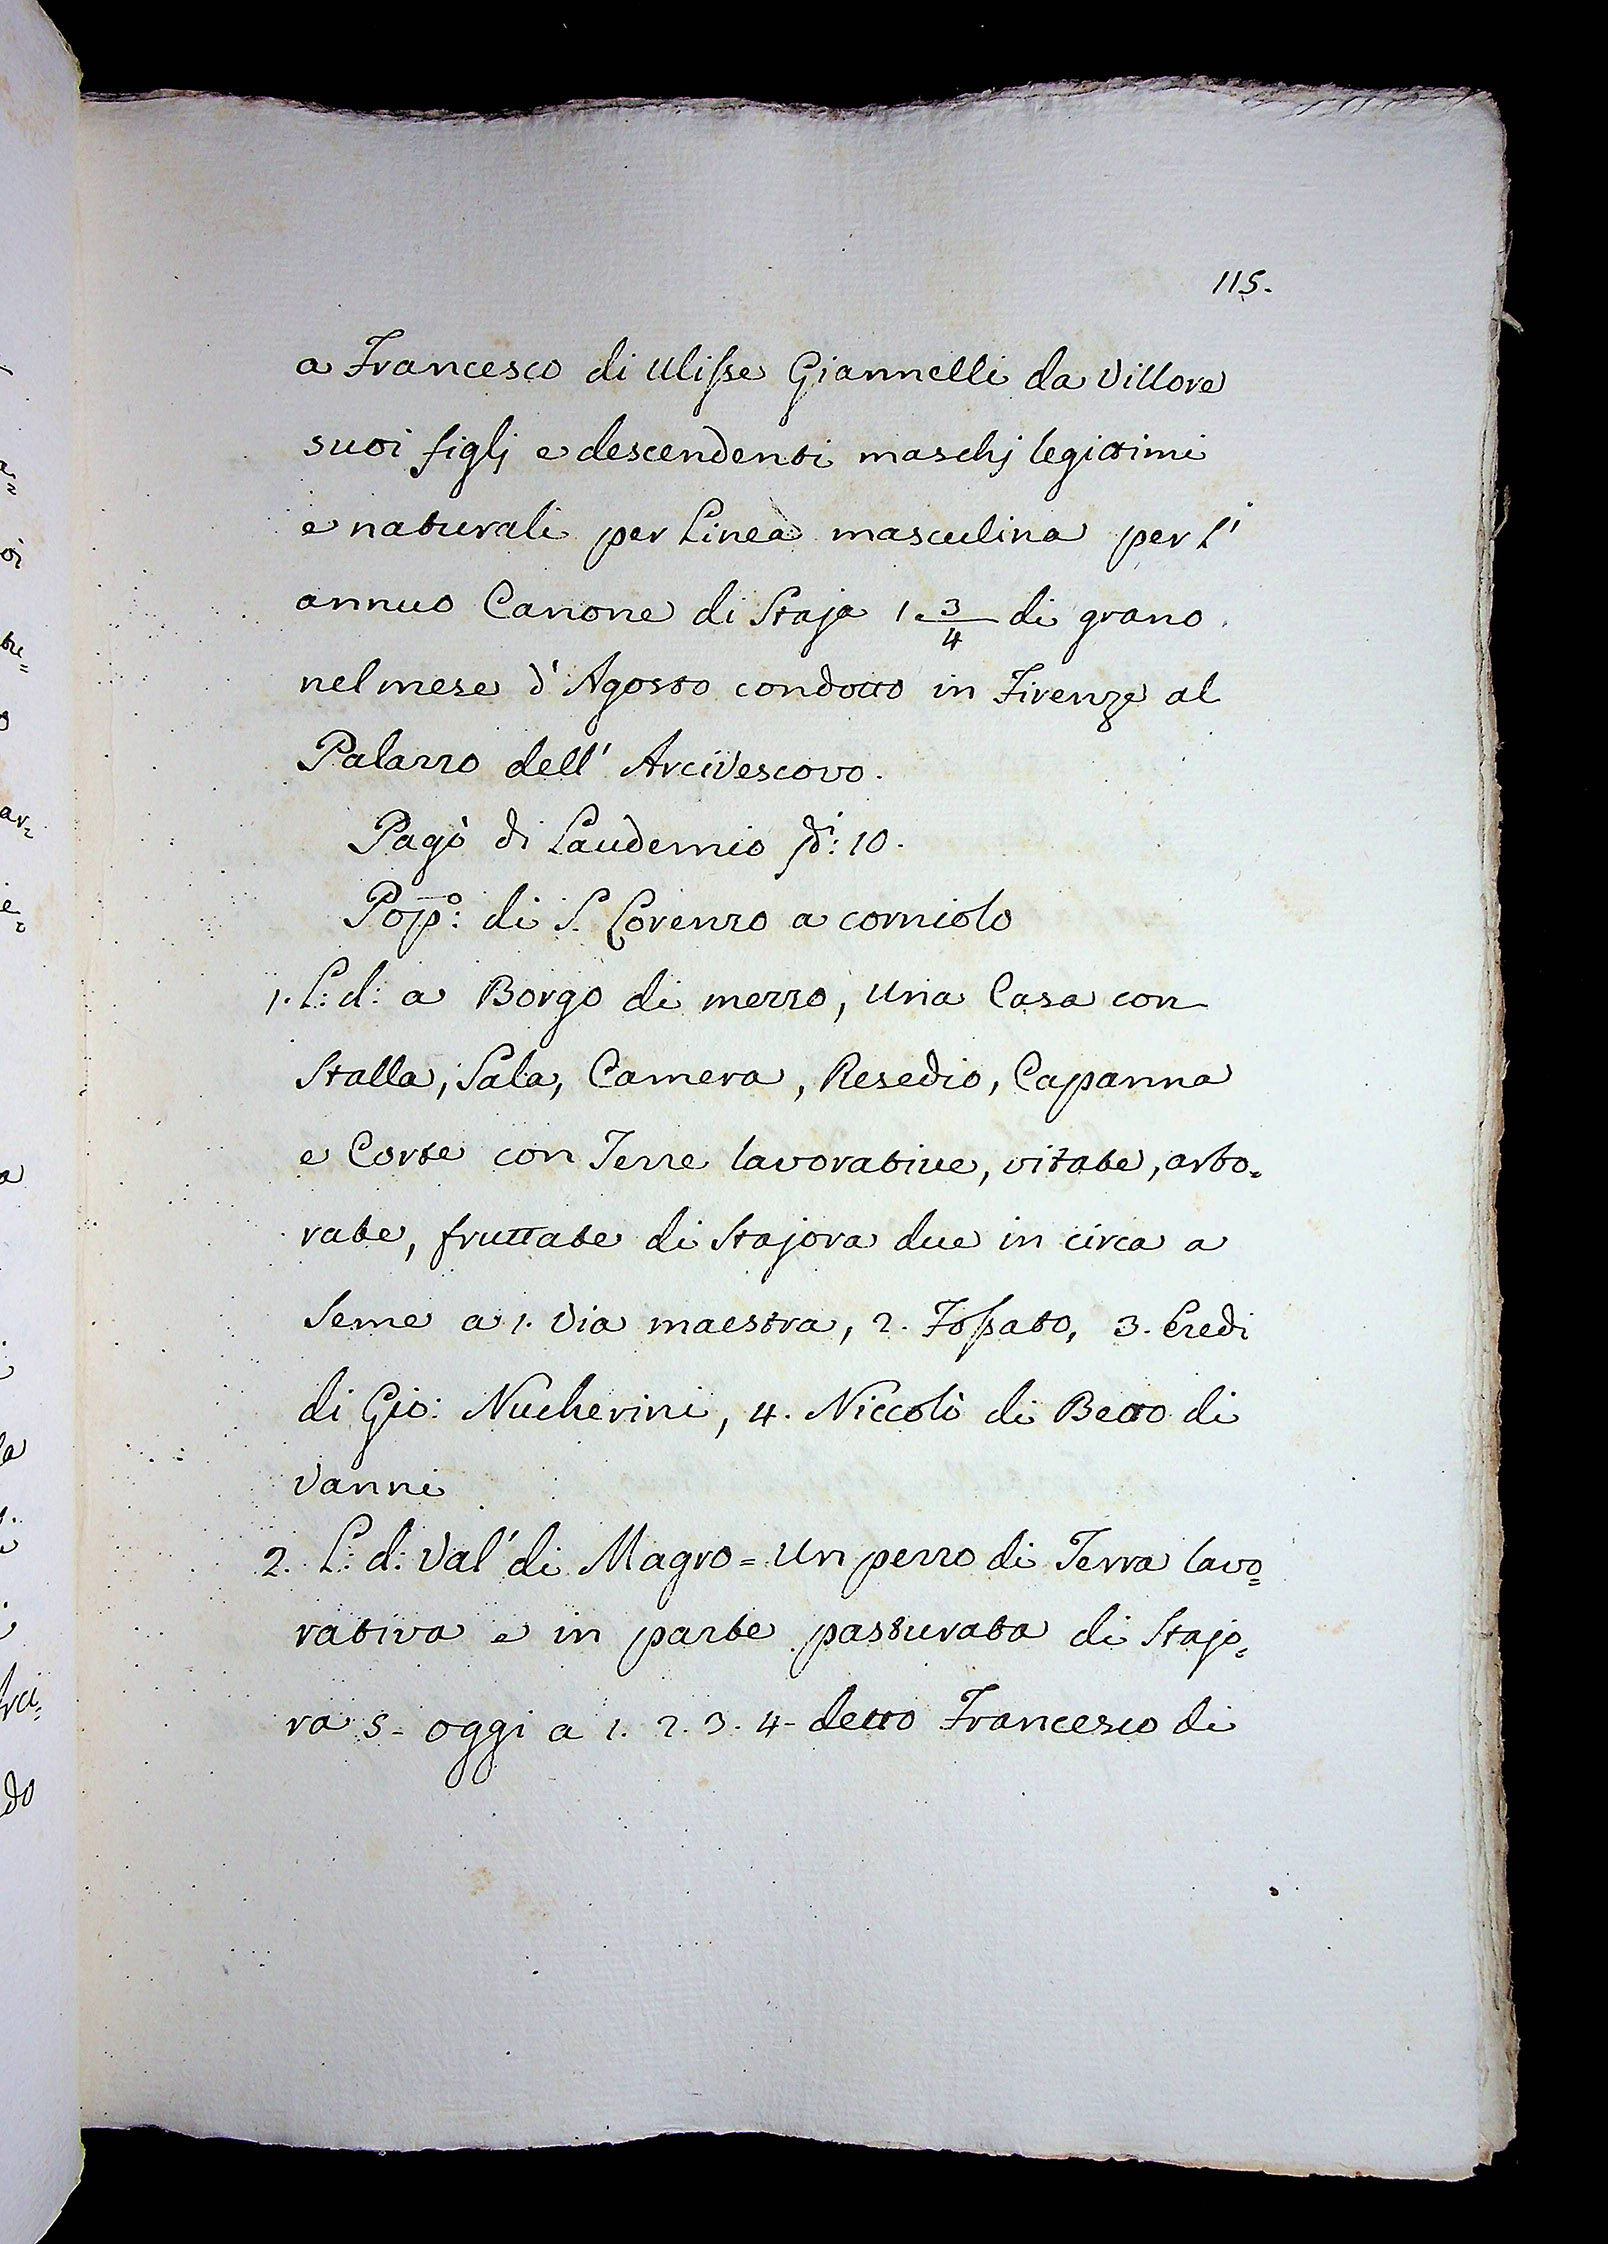 115.
a Francesco di Ulisse Giannelli da Villore
suoi figlj e descendenti maschj legittimi
e naturali per Linea masculina per l'
annuo Canone di Staja 1. 3/4 di grano
nel mese d'Agosto condotto in Firenze al
Palazzo dell' Arcivescovo.
Pagò di Laudemio di: 10.
Popo: di S. Lorenzo a corniolo
1. L: d: a Borgo di mezzo, una Casa con
Stalla, Sala, Camera, Resedio, Capanna
e Corte con Terre lavorative, vitate, arbo=
rate, fruttate di Stajora due in circa a
Seme a 1. Via maestra, 2. Fossato, 3. Eredi
di Gio: Nucherini, 4. Niccolò di Betto di
Vanni
2. L: d: Val' di Magro = Un pezzo di Terra lavo=
rativa e in parte pasturata di Stajo=
ra 5 - oggi a 1. 2. 3. 4 - detto Francesco di